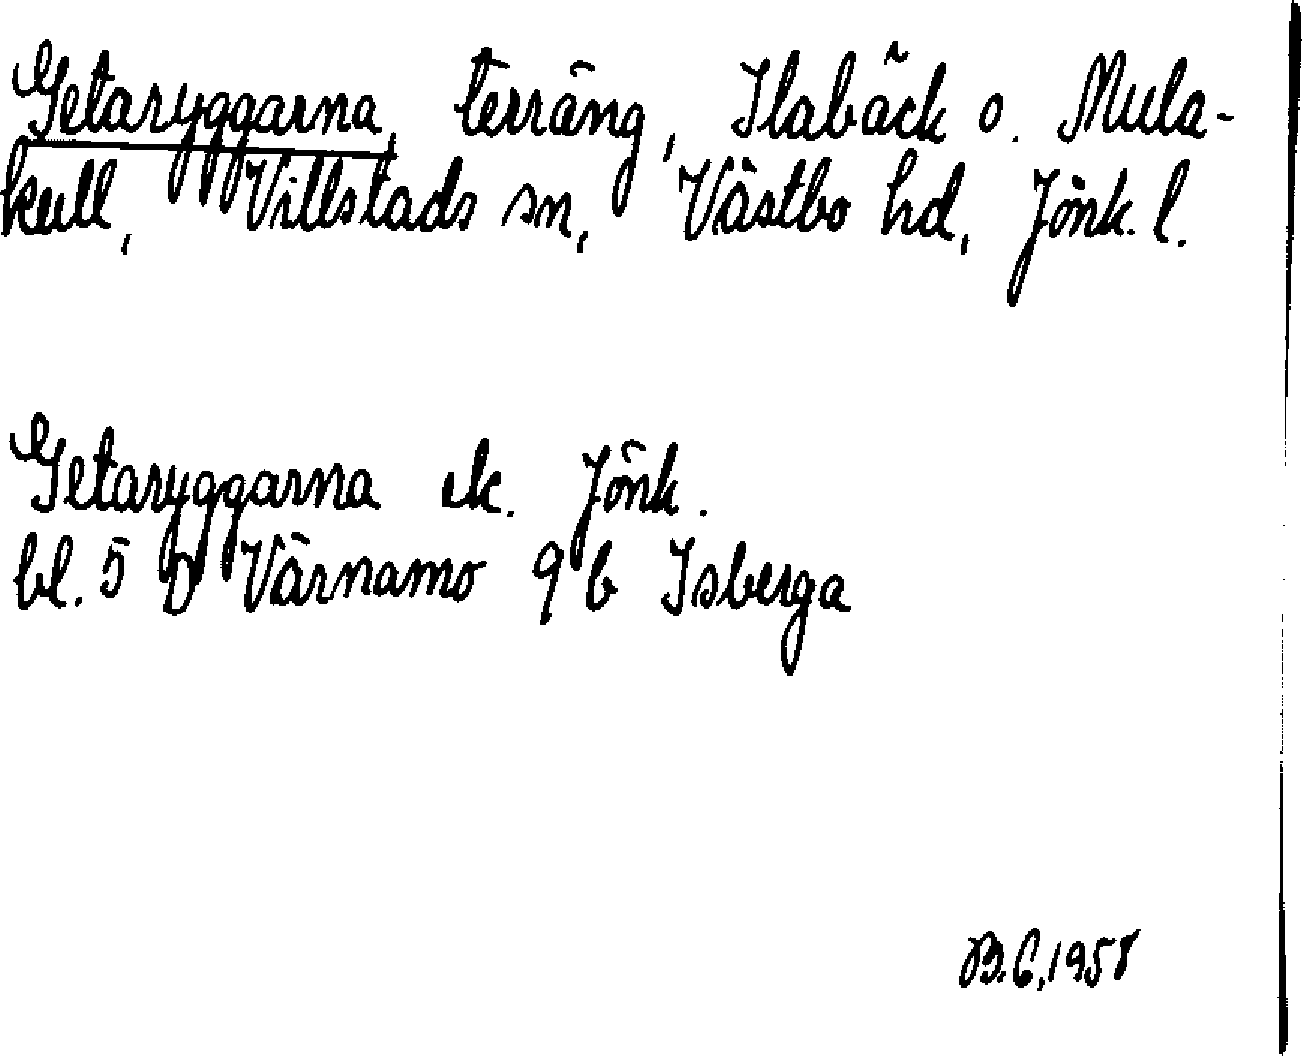 Getaryggarna, terräng, Ilabäck o. Mula-
kull, Villstads sn, Västbo hd, Jönk. l.
Getaryggarna ek. Jönk.
bl. 5 D Värnamo 9 b Isberga
B.C, 1958